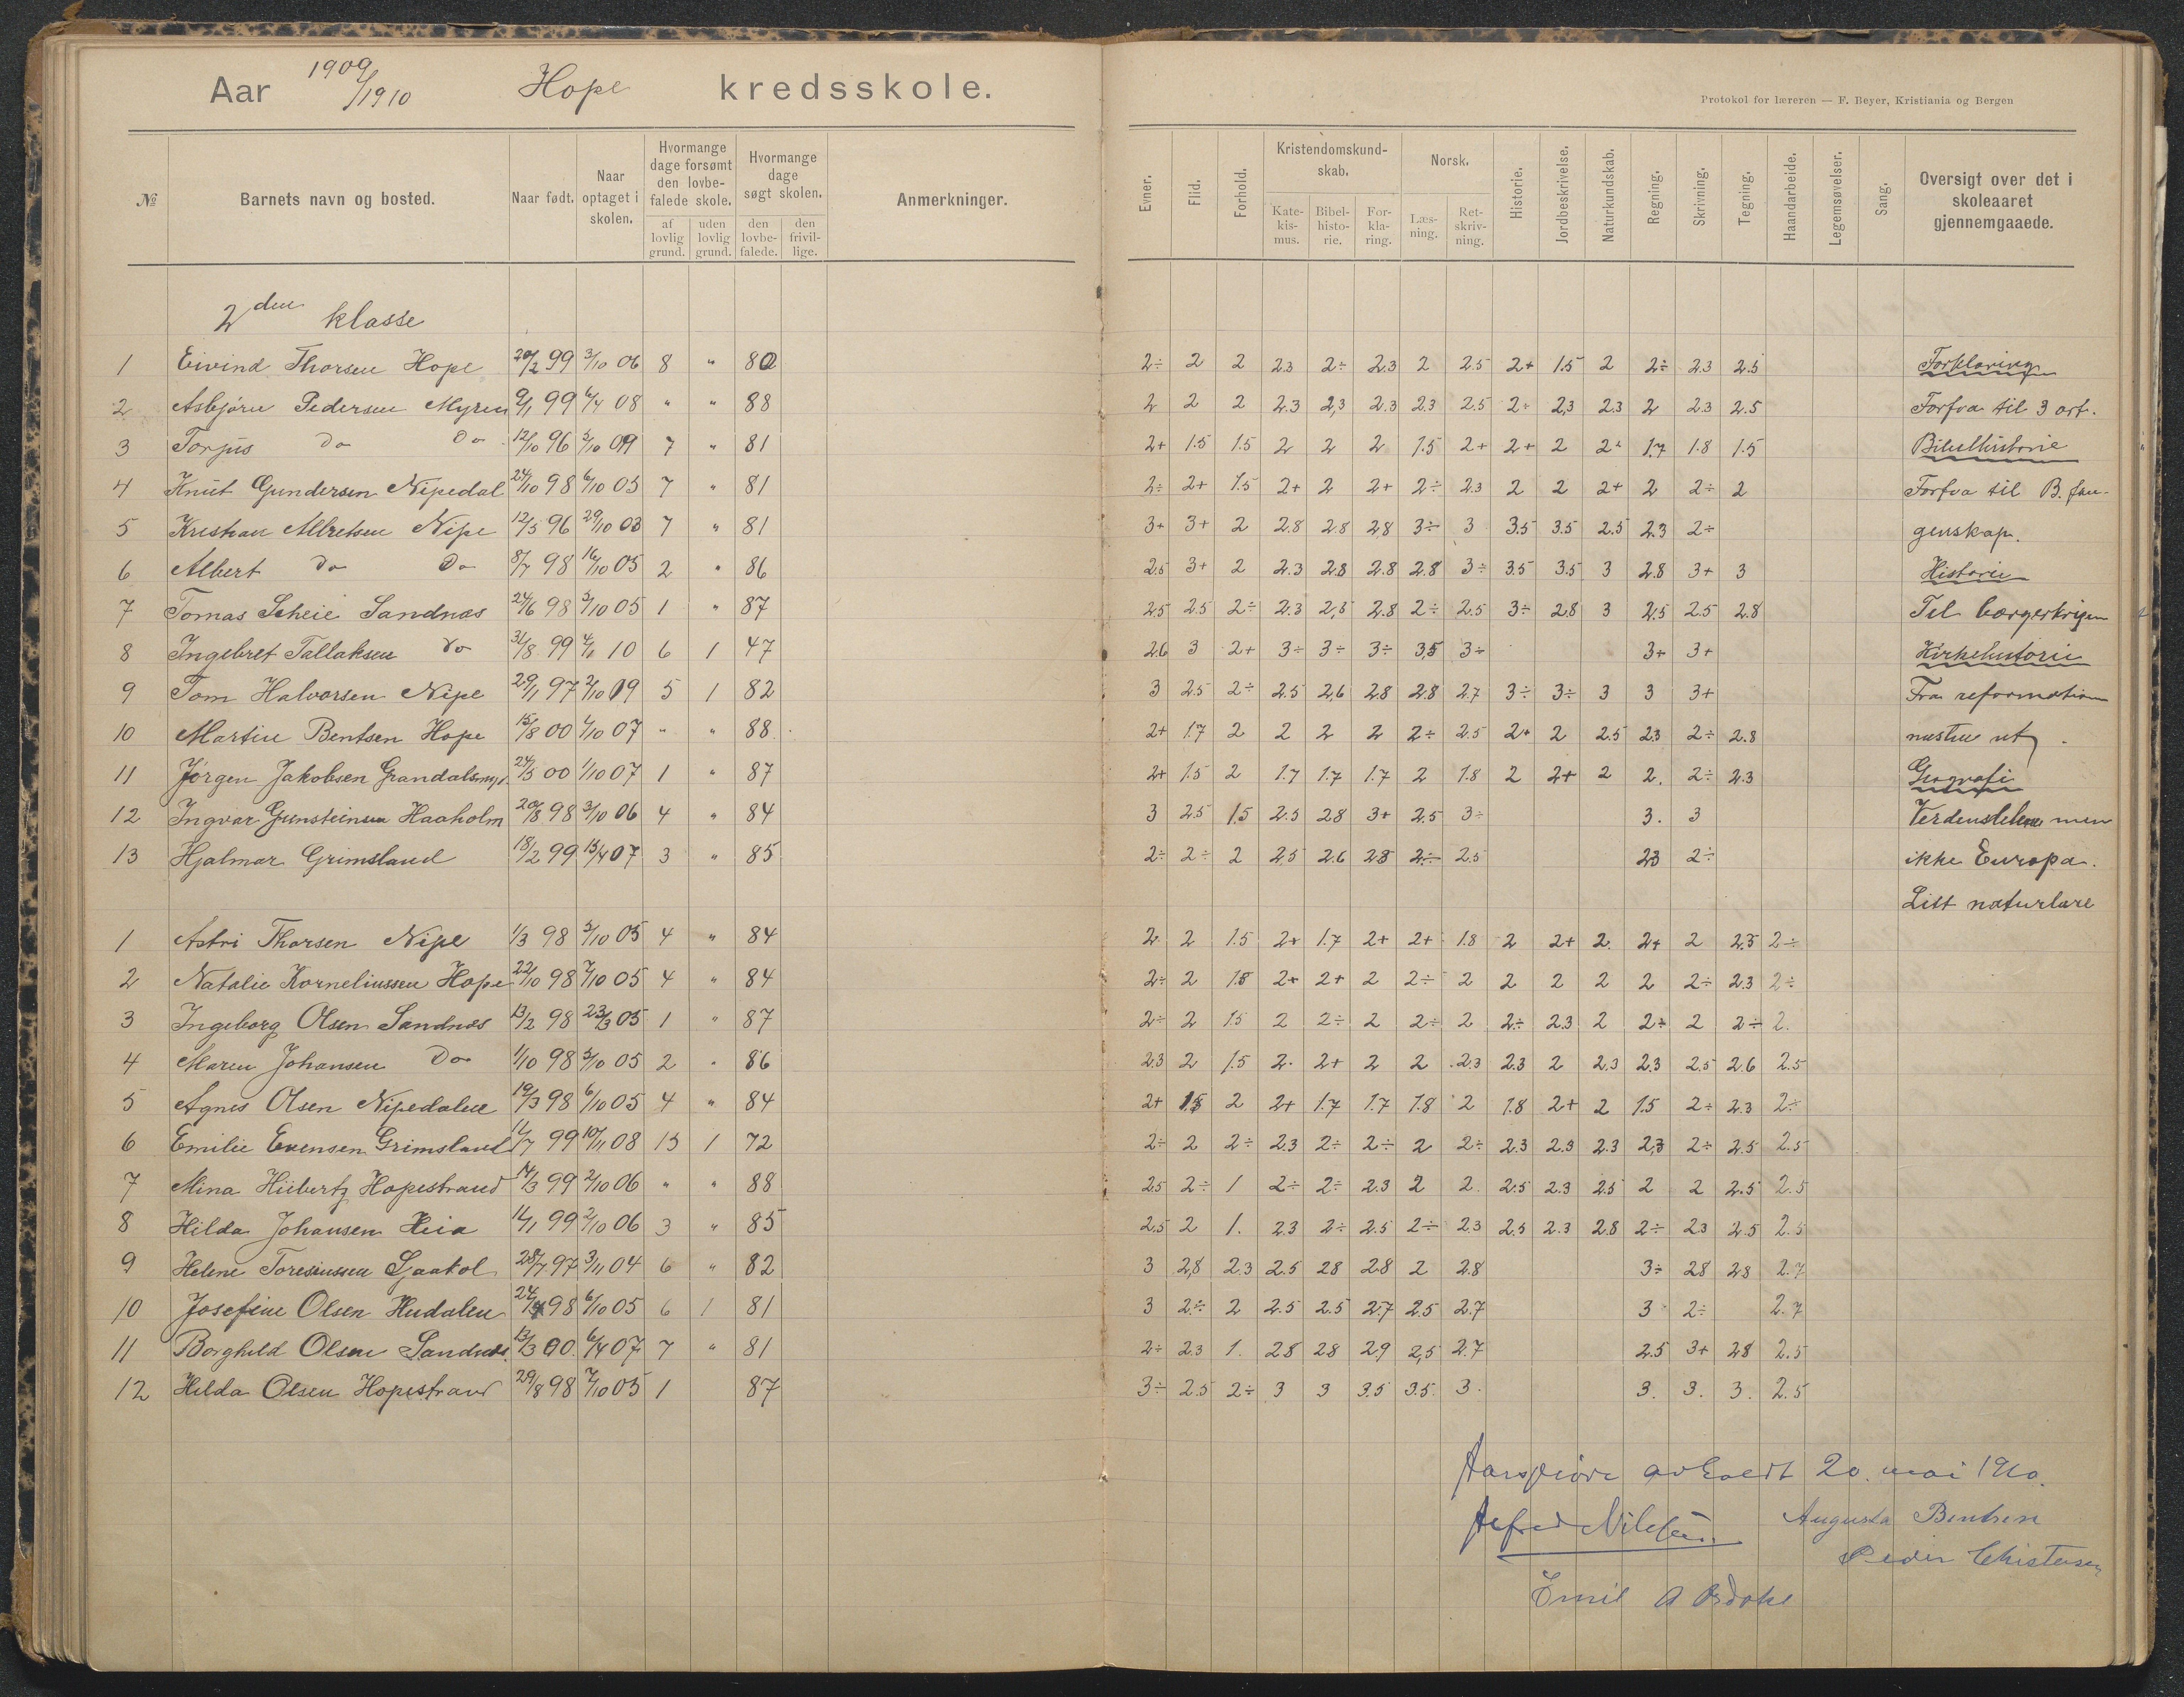 Aar 1909/1910 Hope kredsskole.
Protokol for læreren — F. Beyer, Kristiania og Bergen
№ Barnets navn og bosted. Naar født. Naar optaget i skolen. Hvormange dage forsømt den lovbefalede skole. af lovlig grund. uden lovlig grund. Hvormange dage søgt skolen. den lovbefalede. den frivillige. Anmerkninger.
Evner. Flid. Forhold. Kristendomskundskab. Katekismus. Bibelhistorie. Forklaring. Norsk. Læsning. Retskrivning. Historie. Jordbeskrivelse. Naturkundskab. Regning. Skrivning. Tegning. Haandarbeide. Legemsøvelser. Sang. Oversigt over det i skoleaaret gjennemgaaede.
2den klasse
1 Eivind Thorsen Hope 20/2 99 3/10 06 8 " 80 2÷ 2 2 2.3 2÷ 2.3 2 2.5 2+ 1.5 2 2÷ 2.3 2.5 Forklaring
2 Asbjørn Pedersen Myren 9/1 99 6/4 08 " " 88 2 2 2 2.3 2,3 2.3 2.3 2.5 2÷ 2,3 2.3 2 2.3 2.5 Forfra til 3 art.
3 Torjus Do Do 12/10 96 5/10 09 7 " 81 2+ 1.5 1.5 2 2 2 1.5 2+ 2+ 2 2+ 1.7 1.8 1.5 Bibelhistorie
4 Knut Gundersen Nipedal 24/10 98 6/10 05 7 " 81 2÷ 2+ 1.5 2+ 2 2+ 2÷ 2.3 2 2 2+ 2 2÷ 2 Forfra til B. fan-
5 Kristian Albretsen Nipe 12/5 96 29/10 03 7 " 81 3+ 3+ 2 2.8 2.8 2,8 3÷ 3 3.5 3.5 2.5 2.3 2÷ genskap.
6 Albert Do Do 8/7 98 16/10 05 2 " 86 2.5 3+ 2 2.3 2.8 2.8 2.8 3÷ 3.5 3.5 3 2.8 3+ 3 Historie
7 Tomas Scheie Sandnæs 24/6 98 3/10 05 1 " 87 2.5 2.5 2÷ 2.3 2,5 2.8 2÷ 2.5 3÷ 2.8 3 2.5 2.5 2.8 Til borgerkrigen
8 Ingebret Tallaksen Do 31/8 99 4/1 10 6 1 47 2.6 3 2+ 3÷ 3÷ 3÷ 3,5 3÷ 3+ 3+ Kirkehistorie
9 Tom Halvorsen Nipe 29/1 97 2/10 09 5 1 82 3 2.5 2÷ 2.5 2,6 2.8 2.8 2.7 3÷ 3÷ 3 3 3+ Fra reformation
10 Martin Bentsen Hope 15/8 00 4/10 07 " " 88 2+ 1.7 2 2 2 2 2÷ 2.5 2+ 2 2.5 2.3 2÷ 2.8 næsten ut.
11 Jørgen Jakobsen Grandalsmyr 24/5 00 1/10 07 1 " 87 2+ 1.5 2 1.7 1.7 1.7 2 1.8 2 2+ 2 2. 2÷ 2.3 Geografi
12 Ingvar Gunsteinsen Haaholm 20/8 98 3/10 06 4 " 84 3 2.5 1.5 2.5 2.8 3+ 2.5 3÷ 3. 3 Verdensdelene men
13 Hjalmar Grimsland 18/2 99 15/4 07 3 " 85 2÷ 2÷ 2 2.5 2.6 2.8 2÷ 2.5 2.3 2÷ ikke Europa.
Litt naturlære
1 Astri Thorsen Nipe 1/3 98 3/10 05 4 " 84 2 2 1.5 2+ 1.7 2+ 2+ 1.8 2 2+ 2 2+ 2 2.3 2÷
2 Natalie Korneliussen Hope 22/10 98 7/10 05 4 " 84 2÷ 2 1.8 2+ 2+ 2 2÷ 2 2 2 2 2 2÷ 2.3 2÷
3 Ingeborg Olsen Sandnæs 13/2 98 23/3 05 1 " 87 2÷ 2 1.5 2 2÷ 2 2÷ 2 2÷ 2.3 2 2÷ 2 2÷ 2.
4 Maren Johansen Do 1/10 98 3/10 05 2 " 86 2.3 2 1.5 2. 2+ 2 2 2.3 2.3 2 2.3 2.3 2.5 2.6 2.5
5 Agnes Olsen Nipedalen 19/3 98 6/10 05 4 " 84 2+ 1.5 2 2+ 1.7 1.7 1.8 2 1.8 2+ 2 1.5 2÷ 2.3 2÷
6 Emilie Evensen Grimsland 11/7 99 10/11 08 15 1 72 2÷ 2 2÷ 2.3 2÷ 2÷ 2 2÷ 2.3 2.3 2.3 2,3 2÷ 2.5 2.5
7 Mina Hübertz Hopestrand 14/3 99 2/10 06 " " 88 2.5 2÷ 1 2÷ 2÷ 2.3 2 2 2.5 2.3 2.5 2 2 2.5 2.5
8 Hilda Johansen Heia 11/1 99 2/10 06 3 " 85 2.5 2 1. 2.3 2÷ 2.5 2÷ 2.3 2.5 2.3 2.8 2÷ 2.3 2.5 2.5
9 Helene 28/7 97 3/11 04 6 " 82 3 2,8 2.3 2.5 2.8 2.8 2 2.8 3÷ 2.8 2.8 2.7
10 Josefine Olsen Hudalen 24/4 98 6/10 05 6 1 81 3 2÷ 2 2.5 2.5 2.7 2.5 2.7 3 2÷ 2.7
11 Borghild Olsen Sandnæs 13/3 00 6/4 07 7 " 81 2÷ 2.3 1. 2.8 2.8 2.9 2,5 2.7 2.5 3+ 2.8 2.5
12 Hilda Olsen Hopestrand 29/8 98 7/10 05 1 87 3÷ 2.5 2÷ 3 3 3.5 3.5 3. 3. 3. 3. 2.5
Aarsprøve avholdt 20. mai 1910.
Alfred Nilsen Augusta Bentsen
Peder Christensen
Emil